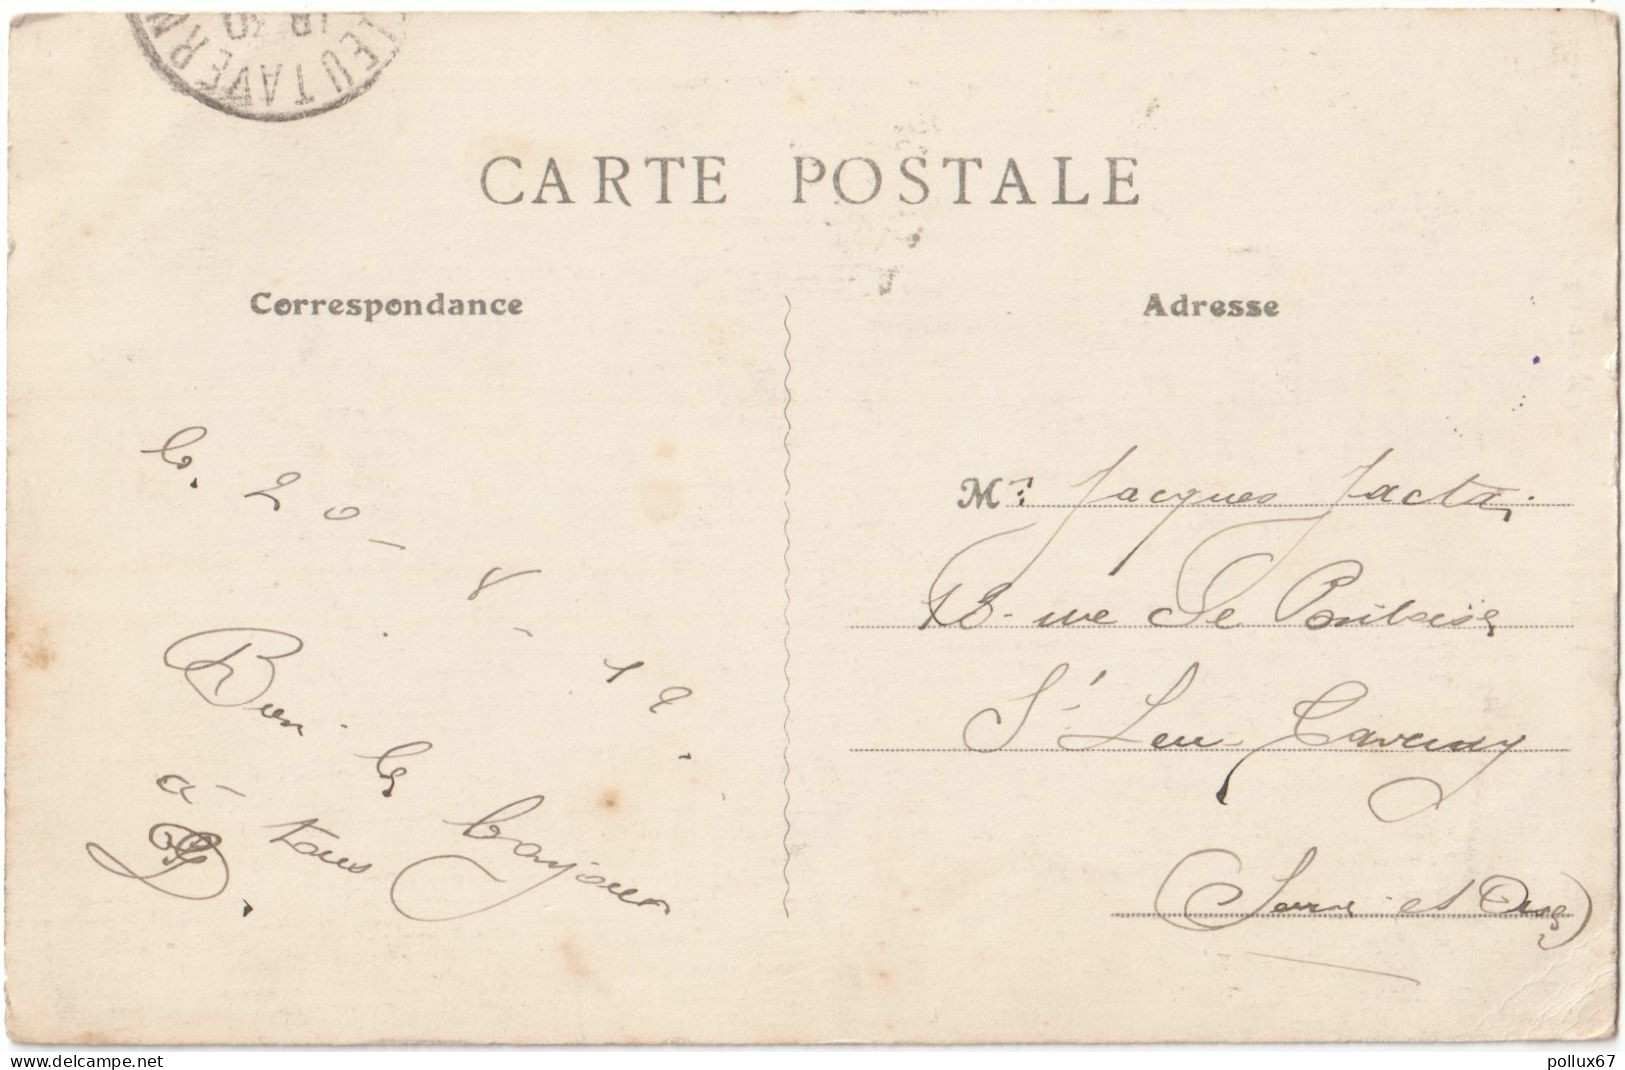 LEU TAVERN
18 30
CARTE POSTALE
Correspondance
Adresse
le 20 - 8 - 12.
Bien le bonjour
à tous
Mr. Jacques Jacta
13 rue de Pontoise
St Leu Taverny
(Seine et Oise)
www.delcampe.net
pollux67